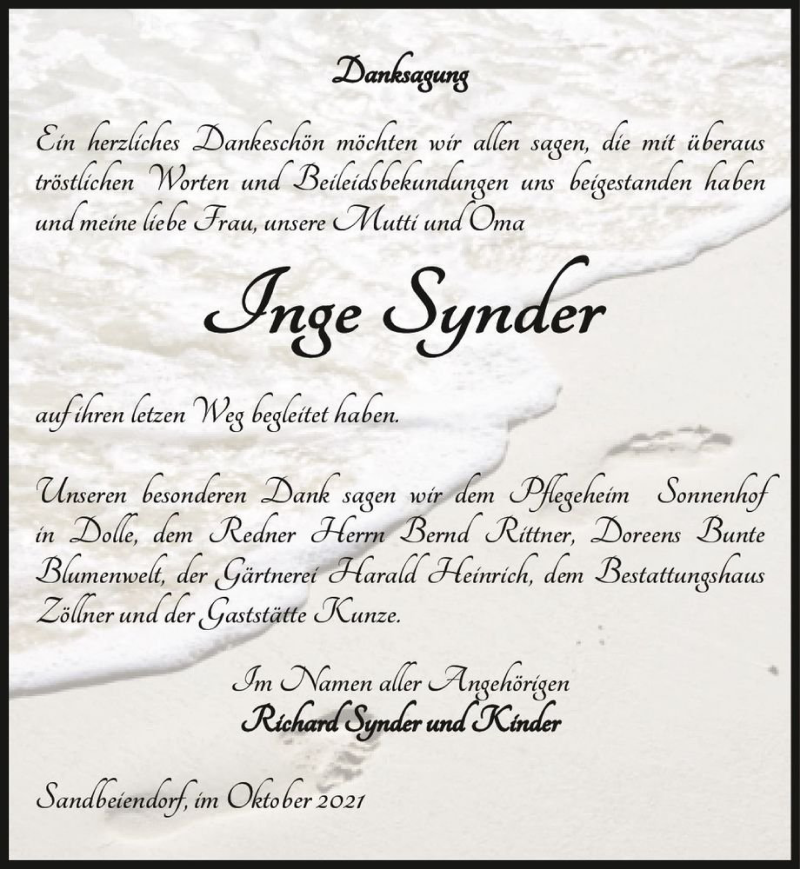 Danksagung
Ein herzliches Dankeschön möchten wir allen sagen, die mit überaus
tröstlichen Worten und Beileidsbekundungen uns beigestanden haben
und meine liebe Frau, unsere Mutti und Oma
Inge Synder
auf ihren letzen Weg begleitet haben.
Unseren besonderen Dank sagen wir dem Pflegeheim Sonnenhof
in Dolle, dem Redner Herrn Bernd Rittner, Doreens Bunte
Blumenwelt, der Gärtnerei Harald Heinrich, dem Bestattungshaus
Zöllner und der Gaststätte Kunze.
Im Namen aller Angehörigen
Richard Synder und Kinder
Sandbeiendorf, im Oktober 2021